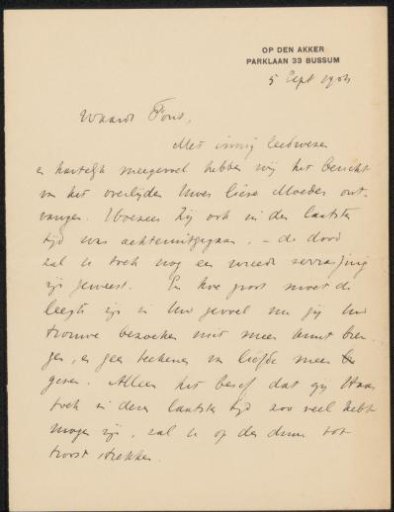 OP DEN AKKER
PARKLAAN 33 BUSSUM
5 Sept 1904
Waarde Fons,
Met innig leedwezen
en hartelijk meegevoel hebben wij het bericht
van het overlijden Uwer lieve Moeder ont-
vangen. Hoezeer Zij ook in den laatsten
tijd was achteruitgegaan, – de dood
zal U toch nog een wreede verrassing
zijn geweest. En hoe groot moet de
leegte zijn in Uw gevoel nu gij Uw
trouwe bezoeken niet meer kunt bren-
gen, en geen teekenen van liefde meer
geven. Alleen het besef dat gij Haar
toch in dezen laatsten tijd zoo veel hebt
mogen zijn, zal U op den duur tot
troost strekken.